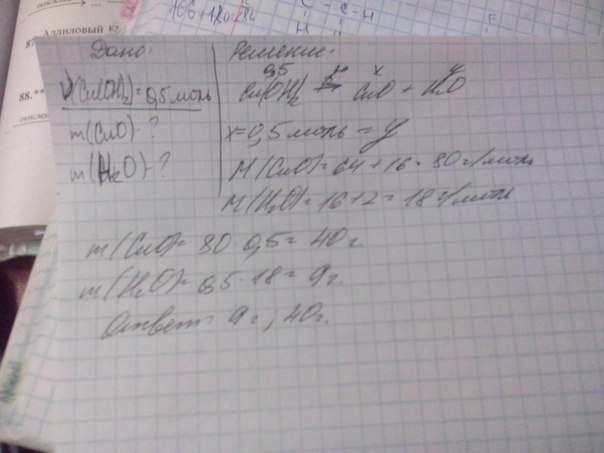 166+18
Аллиловый
88.**
Дано:
Решение:
ν(Cu(OH)2)=0,5 моль
m(CuO)-?
m(H2O)-?
0,5 t° x y
Cu(OH)2 → CuO + H2O
x=0,5 моль = y
M(CuO)=64+16=80 г/моль
M(H2O)=16+2=18 г/моль
m(CuO)=80·0,5=40 г.
m(H2O)=0,5·18=9 г.
Ответ: 9 г, 40 г.